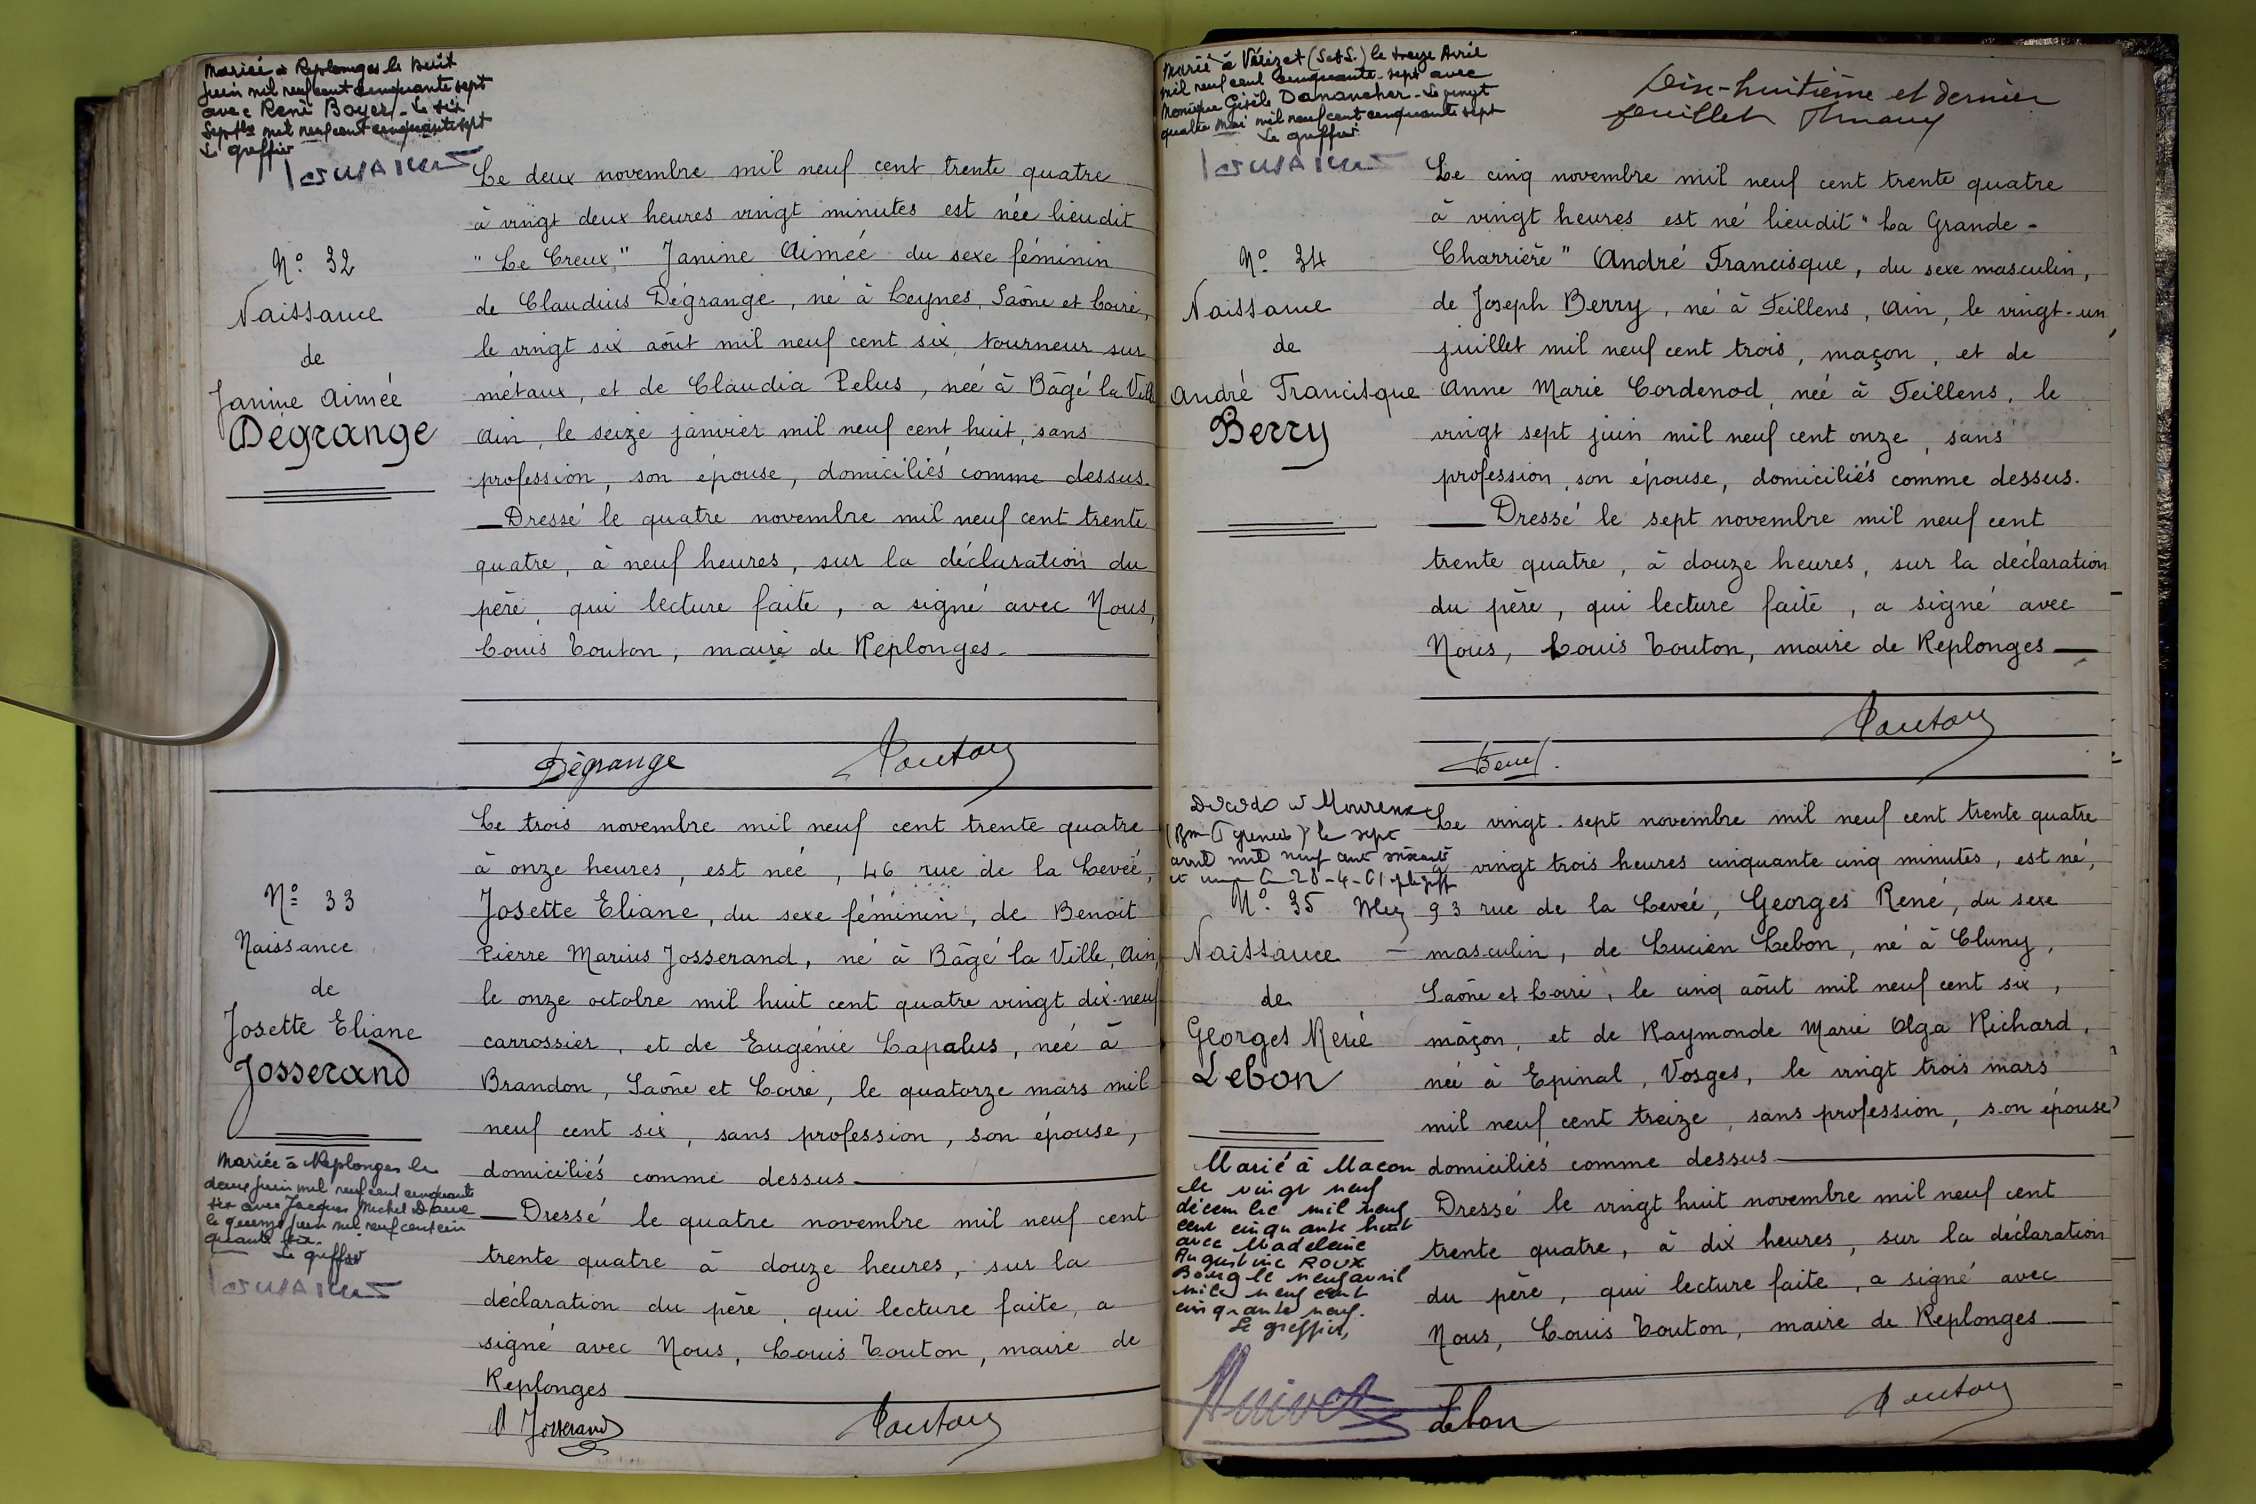 Mariée à Replonges le huit
juin mil neuf cent cinquante sept
avec René Boyer. Le six
Septbre mil neuf cent cinquante sept
Le greffier
Le deux novembre mil neuf cent trente quatre
à vingt deux heures vingt minutes est née lieudit
N° 32
"Le Creux," Janine Aimée du sexe féminin
Naissance
de Claudius Dégrange, né à Leynes, Saône et Loire,
de
le vingt six août mil neuf cent six, tourneur sur
Janine Aimée
métaux, et de Claudia Pelus, née à Bâgé la Ville
Dégrange
Ain, le seize janvier mil neuf cent huit, sans
profession, son épouse, domiciliés comme dessus.
Dressé le quatre novembre mil neuf cent trente
quatre, à neuf heures, sur la déclaration du
père, qui lecture faite, a signé avec Nous,
Louis Touton, maire de Replonges.
Dégrange Touton
Le trois novembre mil neuf cent trente quatre
à onze heures, est née, 46 rue de la Levée,
N° 33
Josette Eliane, du sexe féminin, de Benoit
Naissance
Pierre Marius Josserand, né à Bâgé la Ville, Ain,
de
le onze octobre mil huit cent quatre vingt dix-neuf
Josette Eliane
carrossier, et de Eugénie Lapalus, née à
Josserand
Brandon, Saône et Loire, le quatorze mars mil
neuf cent six, sans profession, son épouse,
domiciliés comme dessus
Mariée à Replonges le
deux juin mil neuf cent cinquante
six avec Jacques Michel
le quinze juin mil neuf cent cin
quante six.
Le greffier
Dressé le quatre novembre mil neuf cent
trente quatre à douze heures, sur la
déclaration du père, qui lecture faite, a
signé avec Nous, Louis Touton, maire de
Replonges
Josserand Touton
Marié à Vérizet (S&L.) le treize Avril
mil neuf cent cinquante-sept avec
Monique Gisèle Danancher. Le vingt
quatre mai mil neuf cent cinquante sept
Le greffier
Dix-huitième et dernier
feuillet
Le cinq novembre mil neuf cent trente quatre
à vingt heures est né lieudit "La Grande-
N° 34
Charrière" André Francisque, du sexe masculin,
Naissance
de Joseph Berry, né à Feillens, Ain, le vingt-un
de
juillet mil neuf cent trois, maçon, et de
André Francisque
Anne Marie Cordenod, née à Feillens, le
Berry
vingt sept juin mil neuf cent onze, sans
profession, son épouse, domiciliés comme dessus.
Dressé le sept novembre mil neuf cent
trente quatre, à douze heures, sur la déclaration
du père, qui lecture faite, a signé avec
Nous, Louis Touton, maire de Replonges
Touton
Décédé à Mourenx
le sept
avril mil neuf cent soixante
et un 28-4-61
Le vingt-sept novembre mil neuf cent trente quatre
à vingt trois heures cinquante cinq minutes, est né,
N° 35
93 rue de la Levée, Georges René, du sexe
Naissance
masculin, de Lucien Lebon, né à Cluny,
de
Saône et Loire, le cinq août mil neuf cent six,
Georges René
maçon, et de Raymonde Marie Olga Richard,
Lebon
née à Epinal, Vosges, le vingt trois mars
mil neuf cent treize, sans profession, son épouse
domiciliés comme dessus
Marié à Macon
le vingt neuf
décembre mil neuf
cent cinquante huit
avec Madeleine
Augustine ROUX
Bourg le neuf avril
mil neuf cent
cinquante neuf.
Le greffier,
Dressé le vingt huit novembre mil neuf cent
trente quatre, à dix heures, sur la déclaration
du père, qui lecture faite, a signé avec
Nous, Louis Touton, maire de Replonges
Lebon Touton